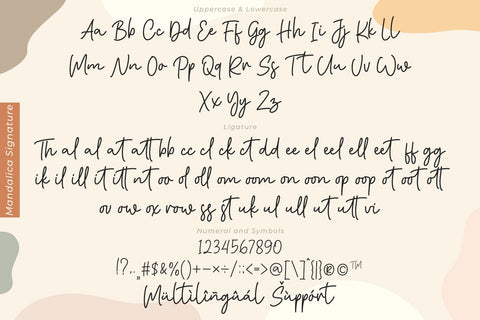 Uppercase & Lowercase
Aa Bb Cc Dd Ee Ff Gg Hh Ii Jj Kk Ll
Mm Nn Oo Pp Qq Rr Ss Tt Uu Vv Ww
Xx Yy Zz
Mandalica Signature
Ligature
Th al al at att bb cc cl ck ct dd ee el eel ell eet ff gg
ik il ill it itt nt oo d oll om oom on oon op oop ot oot ott
ov ow ox row ss st uk ul ull ut utt vi
Numeral and Symbols
1234567890
!?.,,#$&%()+−×÷/:;<=>@[\]^{|}®©™
Mültîlîñgûâl Šûppórt